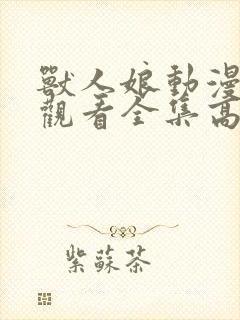 獸人娘動漫
觀看全集高
紫蘇茶